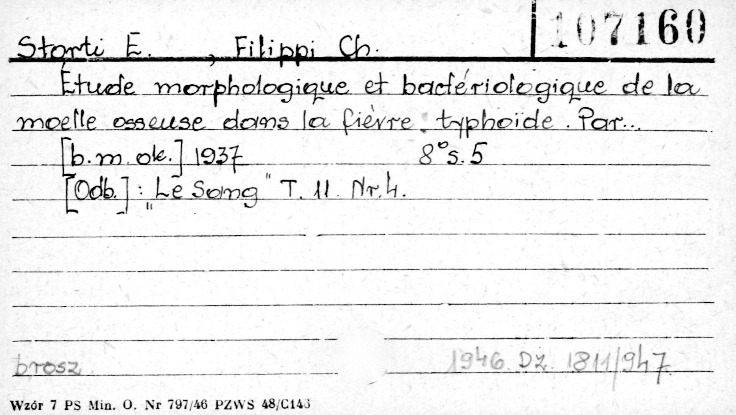 107160
Storti E. , Filippi Ch.
Etude morphologique et bactériologique de la
moelle osseuse dans la fièvre typhoide. Par...
[b.m. ok.] 1937 8° s. 5
[Odb.]: "Le Sang" T. 11. Nr. 4.
brosz 1946 Dz 1811/947
Wzór 7 PS Min. O. Nr 797/46 PZWS 48/C143